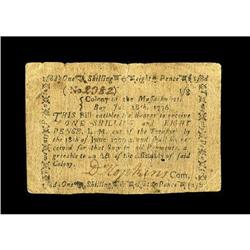 One Shilling & Eight Pence
(No. 2382) 1/8
Colony of the Massachusetts
Bay June 18th, 1776.
THIS Bill entitles the Bearer to receive
ONE SHILLING and EIGHT
PENCE, L. M. out of the Treasury by the
18th of June and shall be re-
ceived for that Sum in all Payments,
agreeable to an Act of the Assembly of said
Colony.
D Hopkins Com.
One Shilling & Eight Pence